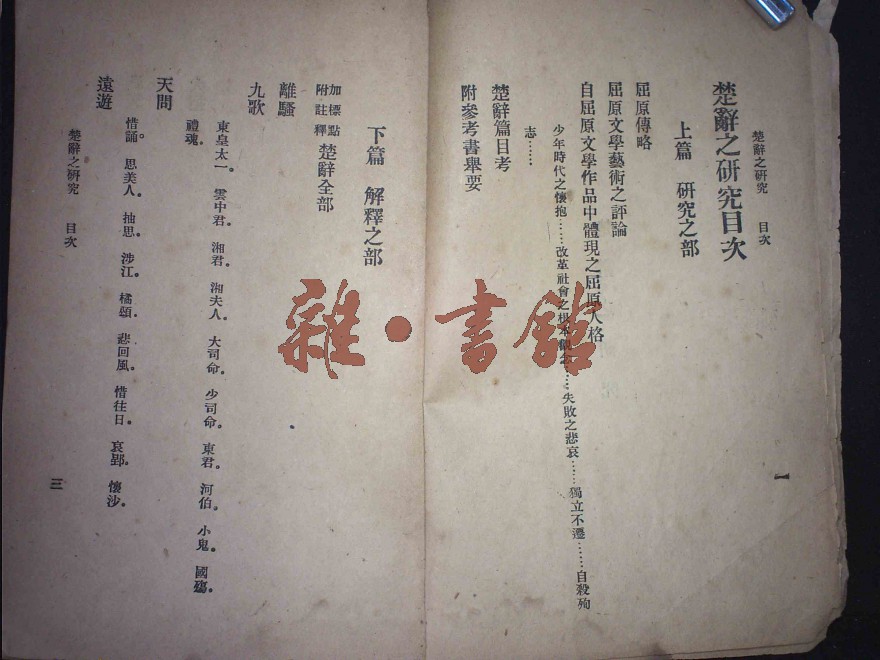 楚辭之研究 目次
楚辭之研究目次
上篇 研究之部
屈原傳略
屈原文學藝術之評論
自屈原文學作品中體現之屈原人格
少年時代之懷抱……改革社會之根本觀念……失敗之悲哀……獨立不遷……自殺殉
志……
楚辭篇目考
附參考書舉要
一
下篇 解釋之部
加標點附註釋楚辭全部
離騷
九歌
東皇太一。雲中君。湘君。湘夫人。大司命。少司命。東君。河伯。小鬼。國殤。
禮魂。
天問
惜誦。思美人。抽思。涉江。橘頌。悲回風。惜往日。哀郢。懷沙。
遠遊
楚辭之研究 目次
三
雜·書館